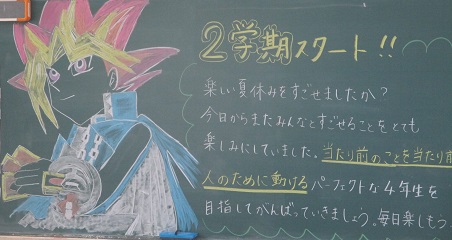 2学期スタート!!
楽しい夏休みをすごせましたか?
今日からまたみんなとすごせることをとても
楽しみにしていました。当たり前のことを当たり前
人のために動けるパーフェクトな4年生を
目指してがんばっていきましょう。毎日楽しもう